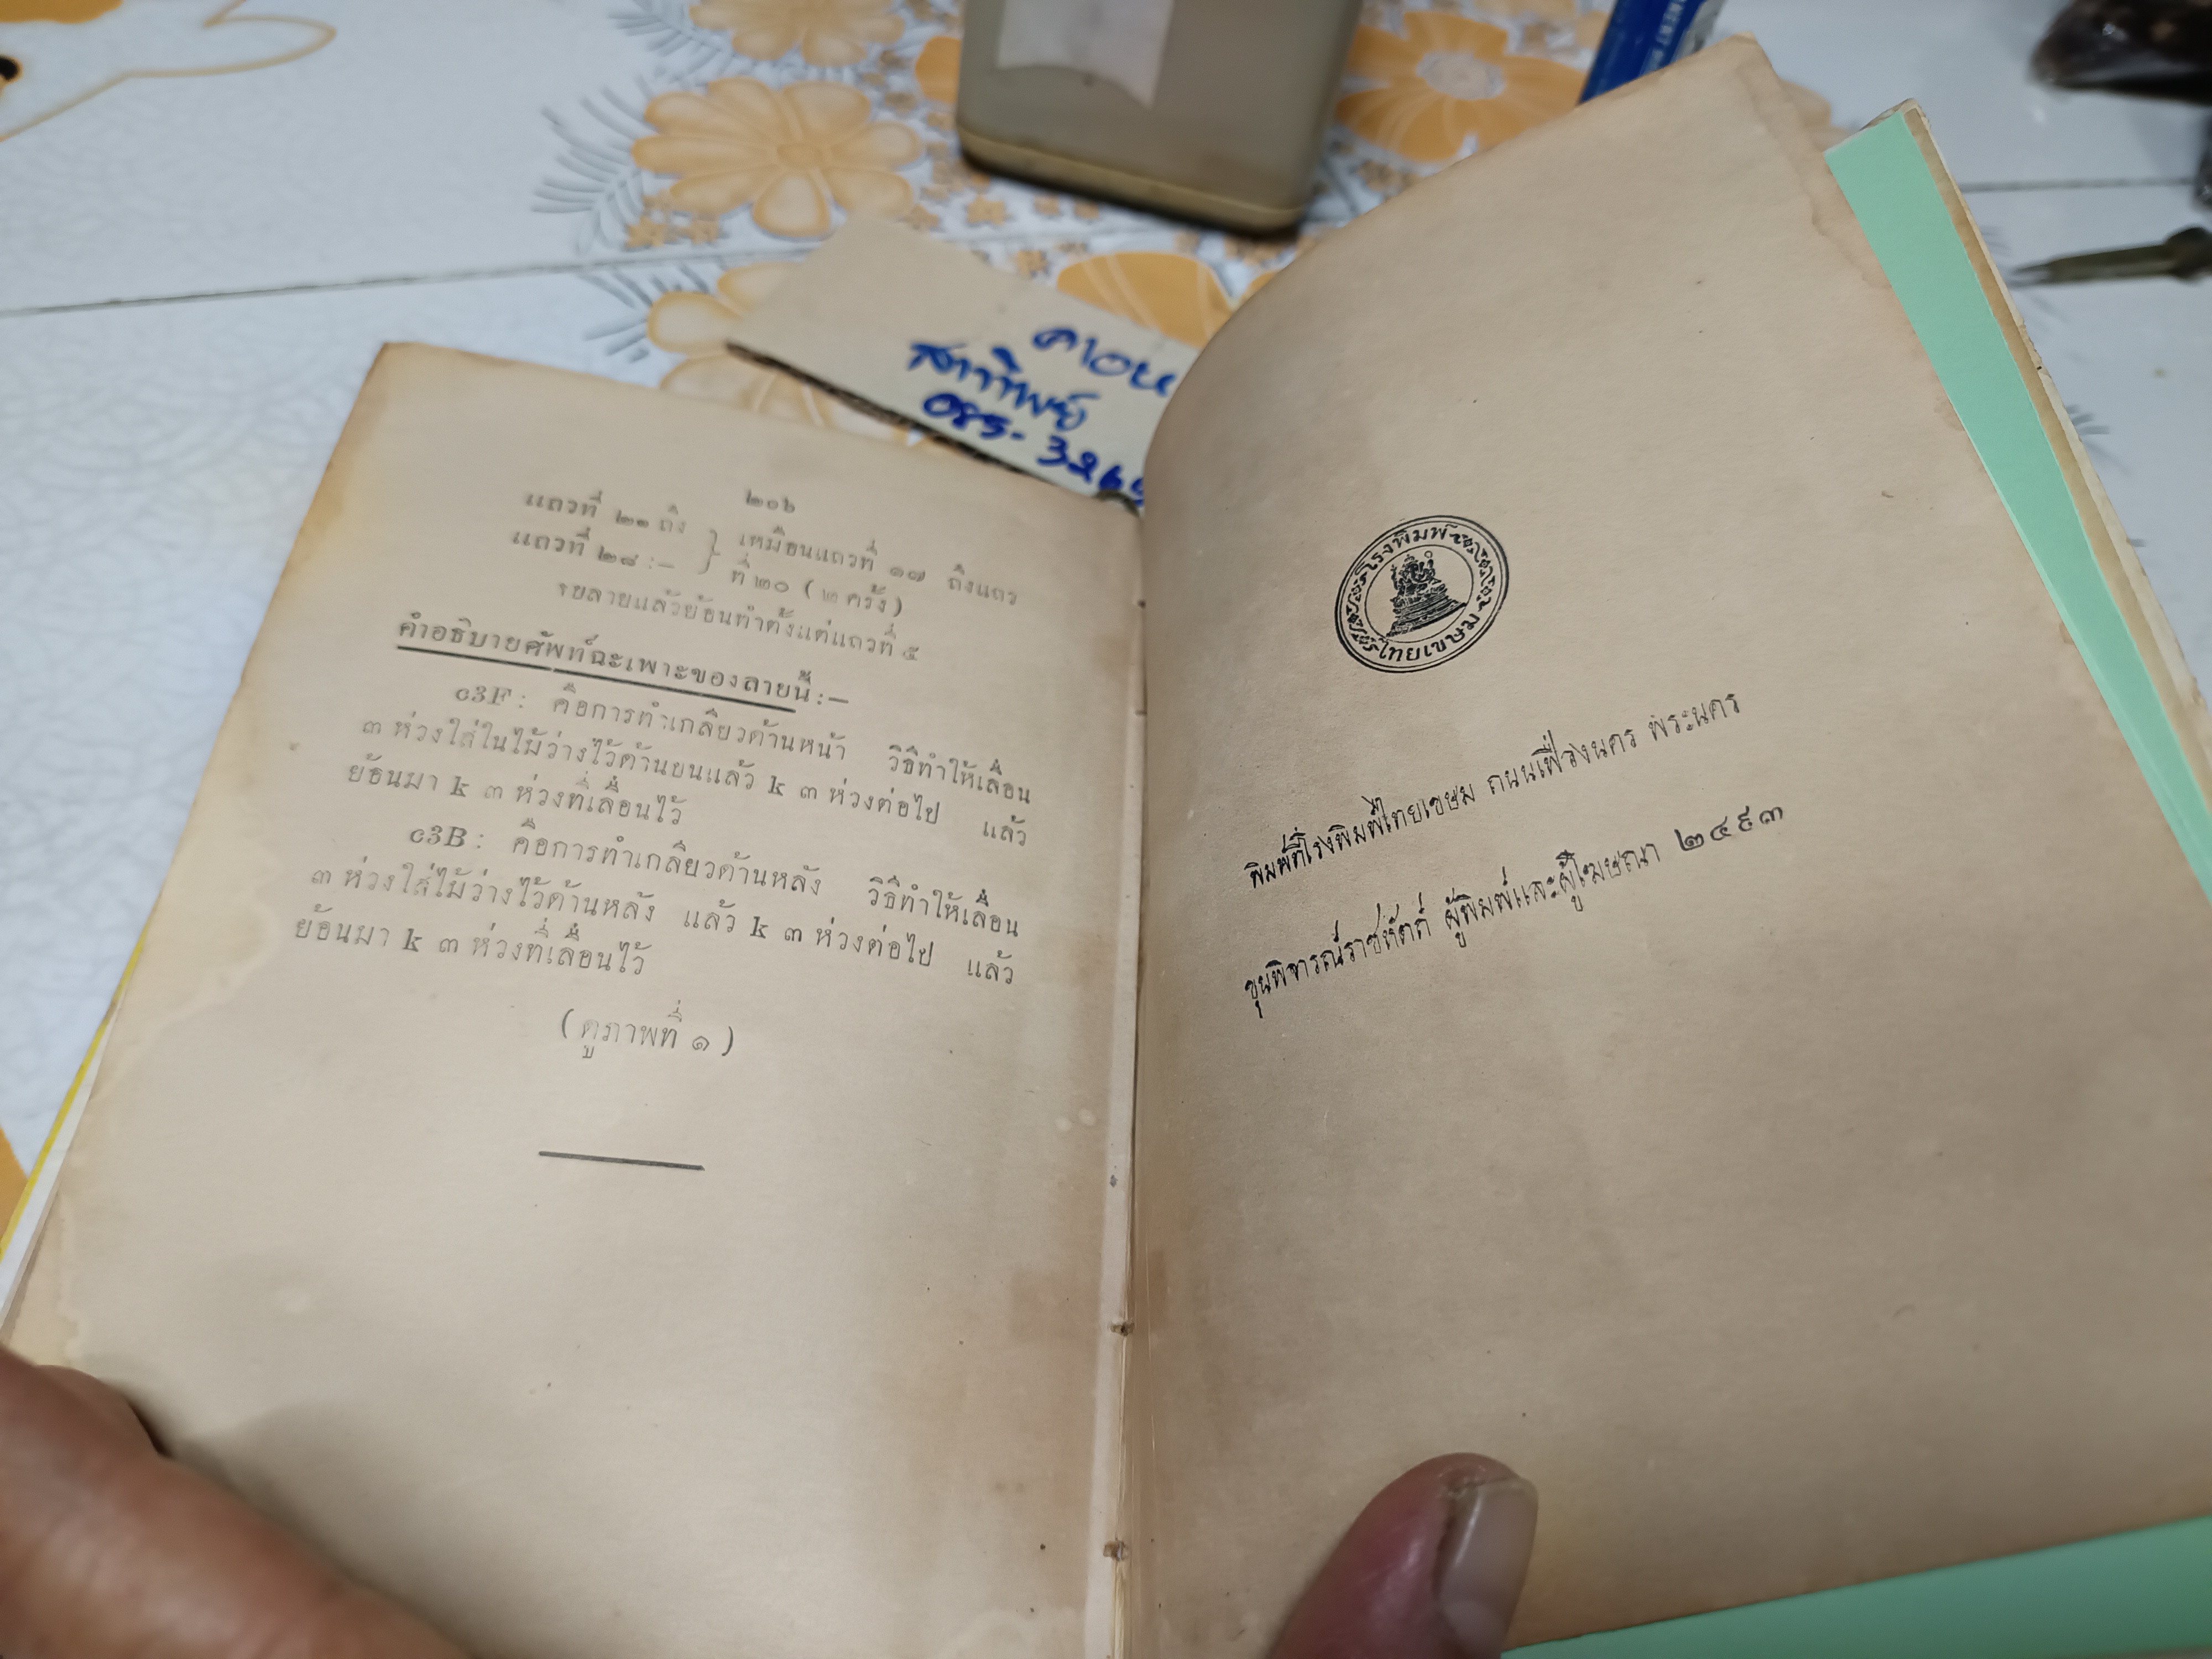 ๒๐๖
แถวที่ ๒๑ ถึง } เหมือนแถวที่ ๑๗ ถึงแถว
แถวที่ ๒๘ :— } ที่ ๒๐ ( ๒ ครั้ง )
จบลายแล้วย้อนทำตั้งแต่แถวที่ ๕
คำอธิบายศัพท์ฉะเพาะของลายนี้ :—
c3F : คือการทำเกลียวด้านหน้า วิธีทำให้เลื่อน
๓ ห่วงใส่ในไม้ว่างไว้ด้านบนแล้ว k ๓ ห่วงต่อไป แล้ว
ย้อนมา k ๓ ห่วงที่เลื่อนไว้
c3B : คือการทำเกลียวด้านหลัง วิธีทำให้เลื่อน
๓ ห่วงใส่ไม้ว่างไว้ด้านหลัง แล้ว k ๓ ห่วงต่อไป แล้ว
ย้อนมา k ๓ ห่วงที่เลื่อนไว้
( ดูภาพที่ ๑ )
โรงพิมพ์
ไทยเขษม
พิมพ์ที่โรงพิมพ์ไทยเขษม ถนนเฟื่องนคร พระนคร
ขุนพิจารณ์ราชหัตถ์ ผู้พิมพ์และผู้โฆษณา ๒๔๙๓
085-326